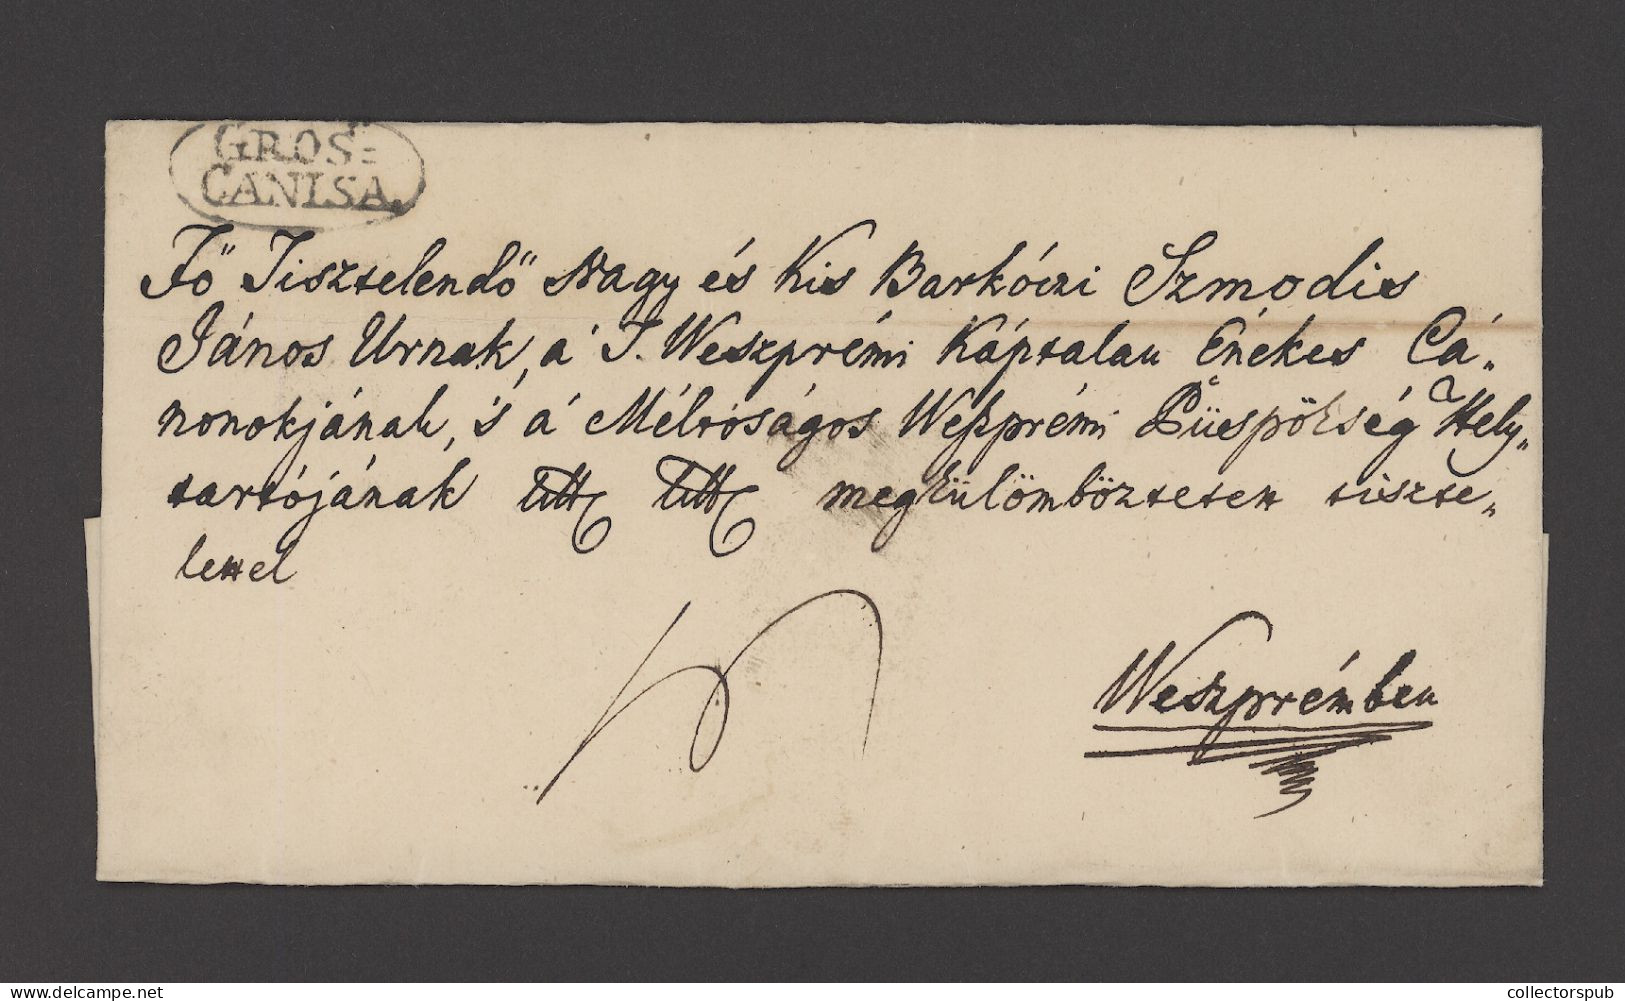 GROS=
CANISA.
Fő Tisztelendő Nagy és Kis Barkóczi Szmodis
János Urnak, á T. Weszprémi Káptalan Énekes Cá„
nonokjának, 's á Méltóságos Weszprémi Püspökség Hely„
tartójának titt titt megkülömböztetett tiszte„
lettel
Weszprémben
www.delcampe.net
collectorspub